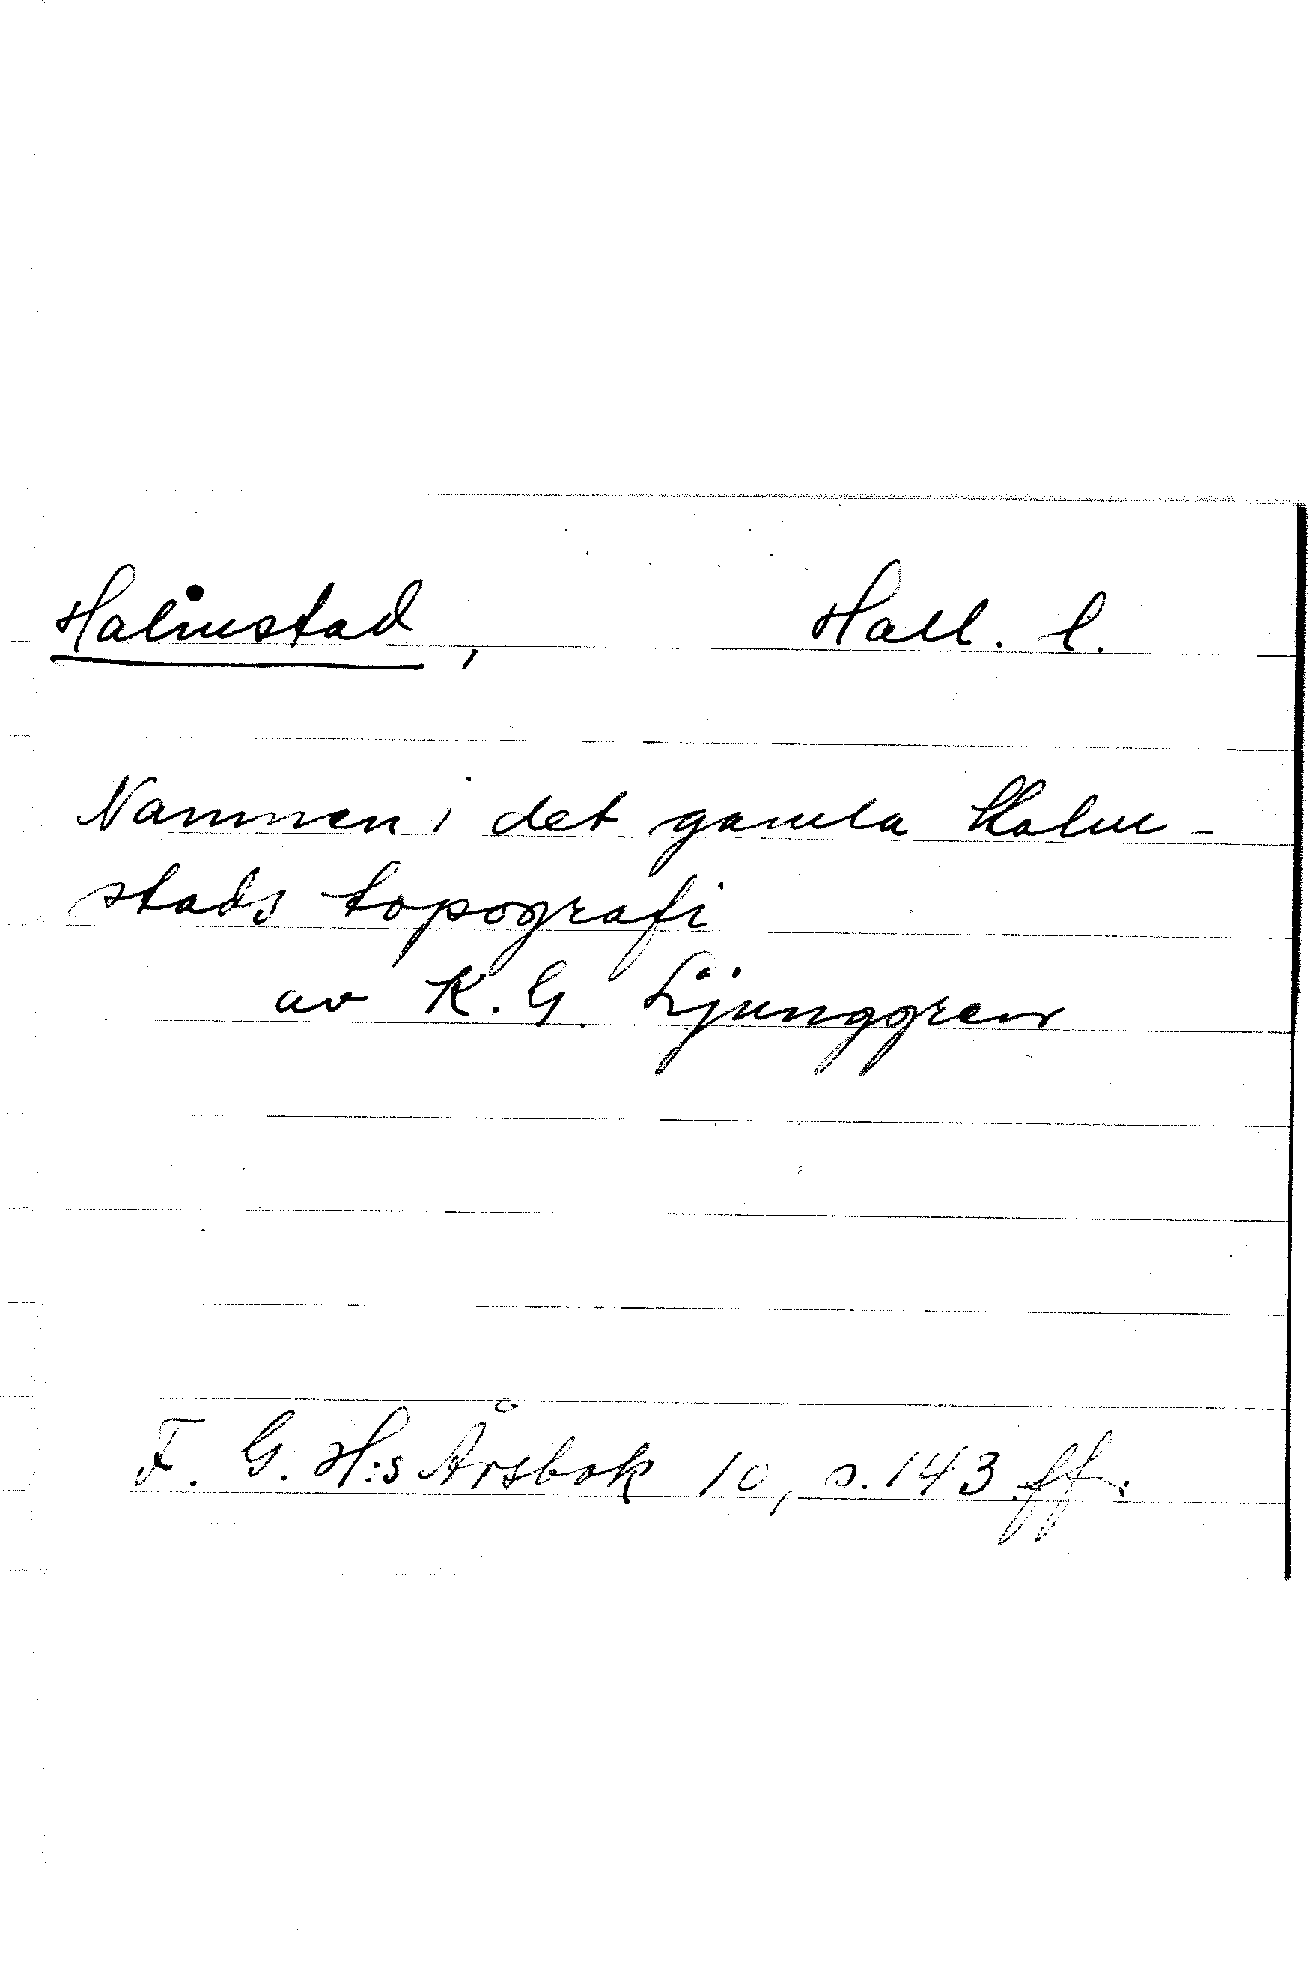 Halmstad, Hall. l.
Namnen i det gamla Halm-
stads topografi
av K. G. Ljunggren
F. G. H:s Årsbok 10, s. 143 ff.